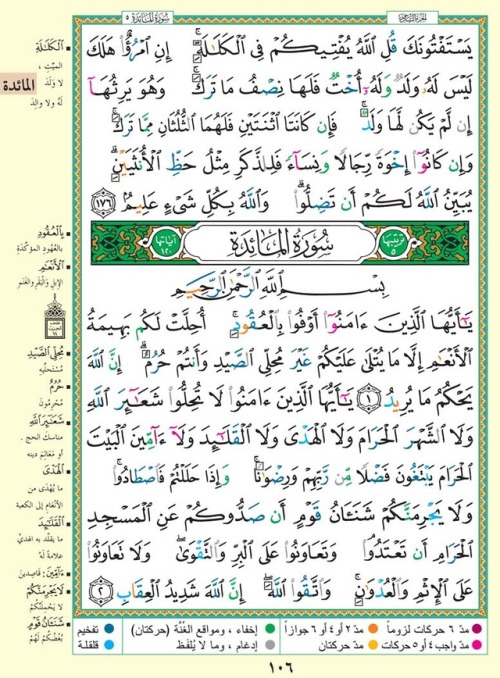 سُورَةُ المَائدَة ٥
الجزء السادس
يَسْتَفْتُونَكَ قُلِ ٱللَّهُ يُفْتِيكُمْ فِى ٱلْكَلَٰلَةِ ۚ إِنِ ٱمْرُؤٌا۟ هَلَكَ
لَيْسَ لَهُۥ وَلَدٌ وَلَهُۥٓ أُخْتٌ فَلَهَا نِصْفُ مَا تَرَكَ ۚ وَهُوَ يَرِثُهَآ
إِن لَّمْ يَكُن لَّهَا وَلَدٌ ۚ فَإِن كَانَتَا ٱثْنَتَيْنِ فَلَهُمَا ٱلثُّلُثَانِ مِمَّا تَرَكَ ۚ
وَإِن كَانُوٓا۟ إِخْوَةً رِّجَالًا وَنِسَآءً فَلِلذَّكَرِ مِثْلُ حَظِّ ٱلْأُنثَيَيْنِ ۗ
يُبَيِّنُ ٱللَّهُ لَكُمْ أَن تَضِلُّوا۟ ۗ وَٱللَّهُ بِكُلِّ شَىْءٍ عَلِيمٌۢ ١٧٦
ترتيبها ٥ سُورَةُ المَائدَة آياتها ١٢٠
بِسْمِ ٱللَّهِ ٱلرَّحْمَٰنِ ٱلرَّحِيمِ
يَٰٓأَيُّهَا ٱلَّذِينَ ءَامَنُوٓا۟ أَوْفُوا۟ بِٱلْعُقُودِ ۚ أُحِلَّتْ لَكُم بَهِيمَةُ
ٱلْأَنْعَٰمِ إِلَّا مَا يُتْلَىٰ عَلَيْكُمْ غَيْرَ مُحِلِّى ٱلصَّيْدِ وَأَنتُمْ حُرُمٌ ۗ إِنَّ ٱللَّهَ
يَحْكُمُ مَا يُرِيدُ ١ يَٰٓأَيُّهَا ٱلَّذِينَ ءَامَنُوا۟ لَا تُحِلُّوا۟ شَعَٰٓئِرَ ٱللَّهِ
وَلَا ٱلشَّهْرَ ٱلْحَرَامَ وَلَا ٱلْهَدْىَ وَلَا ٱلْقَلَٰٓئِدَ وَلَآ ءَآمِّينَ ٱلْبَيْتَ
ٱلْحَرَامَ يَبْتَغُونَ فَضْلًا مِّن رَّبِّهِمْ وَرِضْوَٰنًا ۚ وَإِذَا حَلَلْتُمْ فَٱصْطَادُوا۟ ۚ
وَلَا يَجْرِمَنَّكُمْ شَنَـَٔانُ قَوْمٍ أَن صَدُّوكُمْ عَنِ ٱلْمَسْجِدِ
ٱلْحَرَامِ أَن تَعْتَدُوا۟ ۘ وَتَعَاوَنُوا۟ عَلَى ٱلْبِرِّ وَٱلتَّقْوَىٰ ۖ وَلَا تَعَاوَنُوا۟
عَلَى ٱلْإِثْمِ وَٱلْعُدْوَٰنِ ۚ وَٱتَّقُوا۟ ٱللَّهَ ۖ إِنَّ ٱللَّهَ شَدِيدُ ٱلْعِقَابِ ٢
المائدة
الكَلَالَةِ
الميّت ،
لا وَلَدَ
لَهُ ولا والِدَ
بِالْعُقُودِ
بالعُهودِ المؤكّدَةِ
الْأَنْعَٰمِ
الإبلِ والبَقرِ والغَنمِ
مُحِلِّى الصَّيْدِ
مُسْتَحِلّيهِ
حُرُمٌ
مُحْرِمُونَ
شَعَٰٓئِرَ اللَّهِ
مناسكَ الحج .
أو معَالِمَ دينه
الْهَدْىَ
ما يُهْدَى من
الأنعَامِ إلى الكعبة
الْقَلَٰٓئِدَ
ما يقلّد به الهديُ
علامةً لَهُ
ءَآمِّينَ: قاصدِينَ
لَا يَجْرِمَنَّكُمْ
لا يَحْمِلَنَّكُمْ
شَنَـَٔانُ قَوْمٍ
بُغْضُكُمْ لَهُمْ
مدّ ٦ حركات لزوماً
مدّ ٢ أو ٤ أو ٦ جوازاً
إخفاء ، ومواقع الغُنَّة (حركتان)
تفخيم
مدّ واجب ٤ أو ٥ حركات
مدّ حركتان
إدغام ، وما لا يُلفَظ
قلقلة
١٠٦